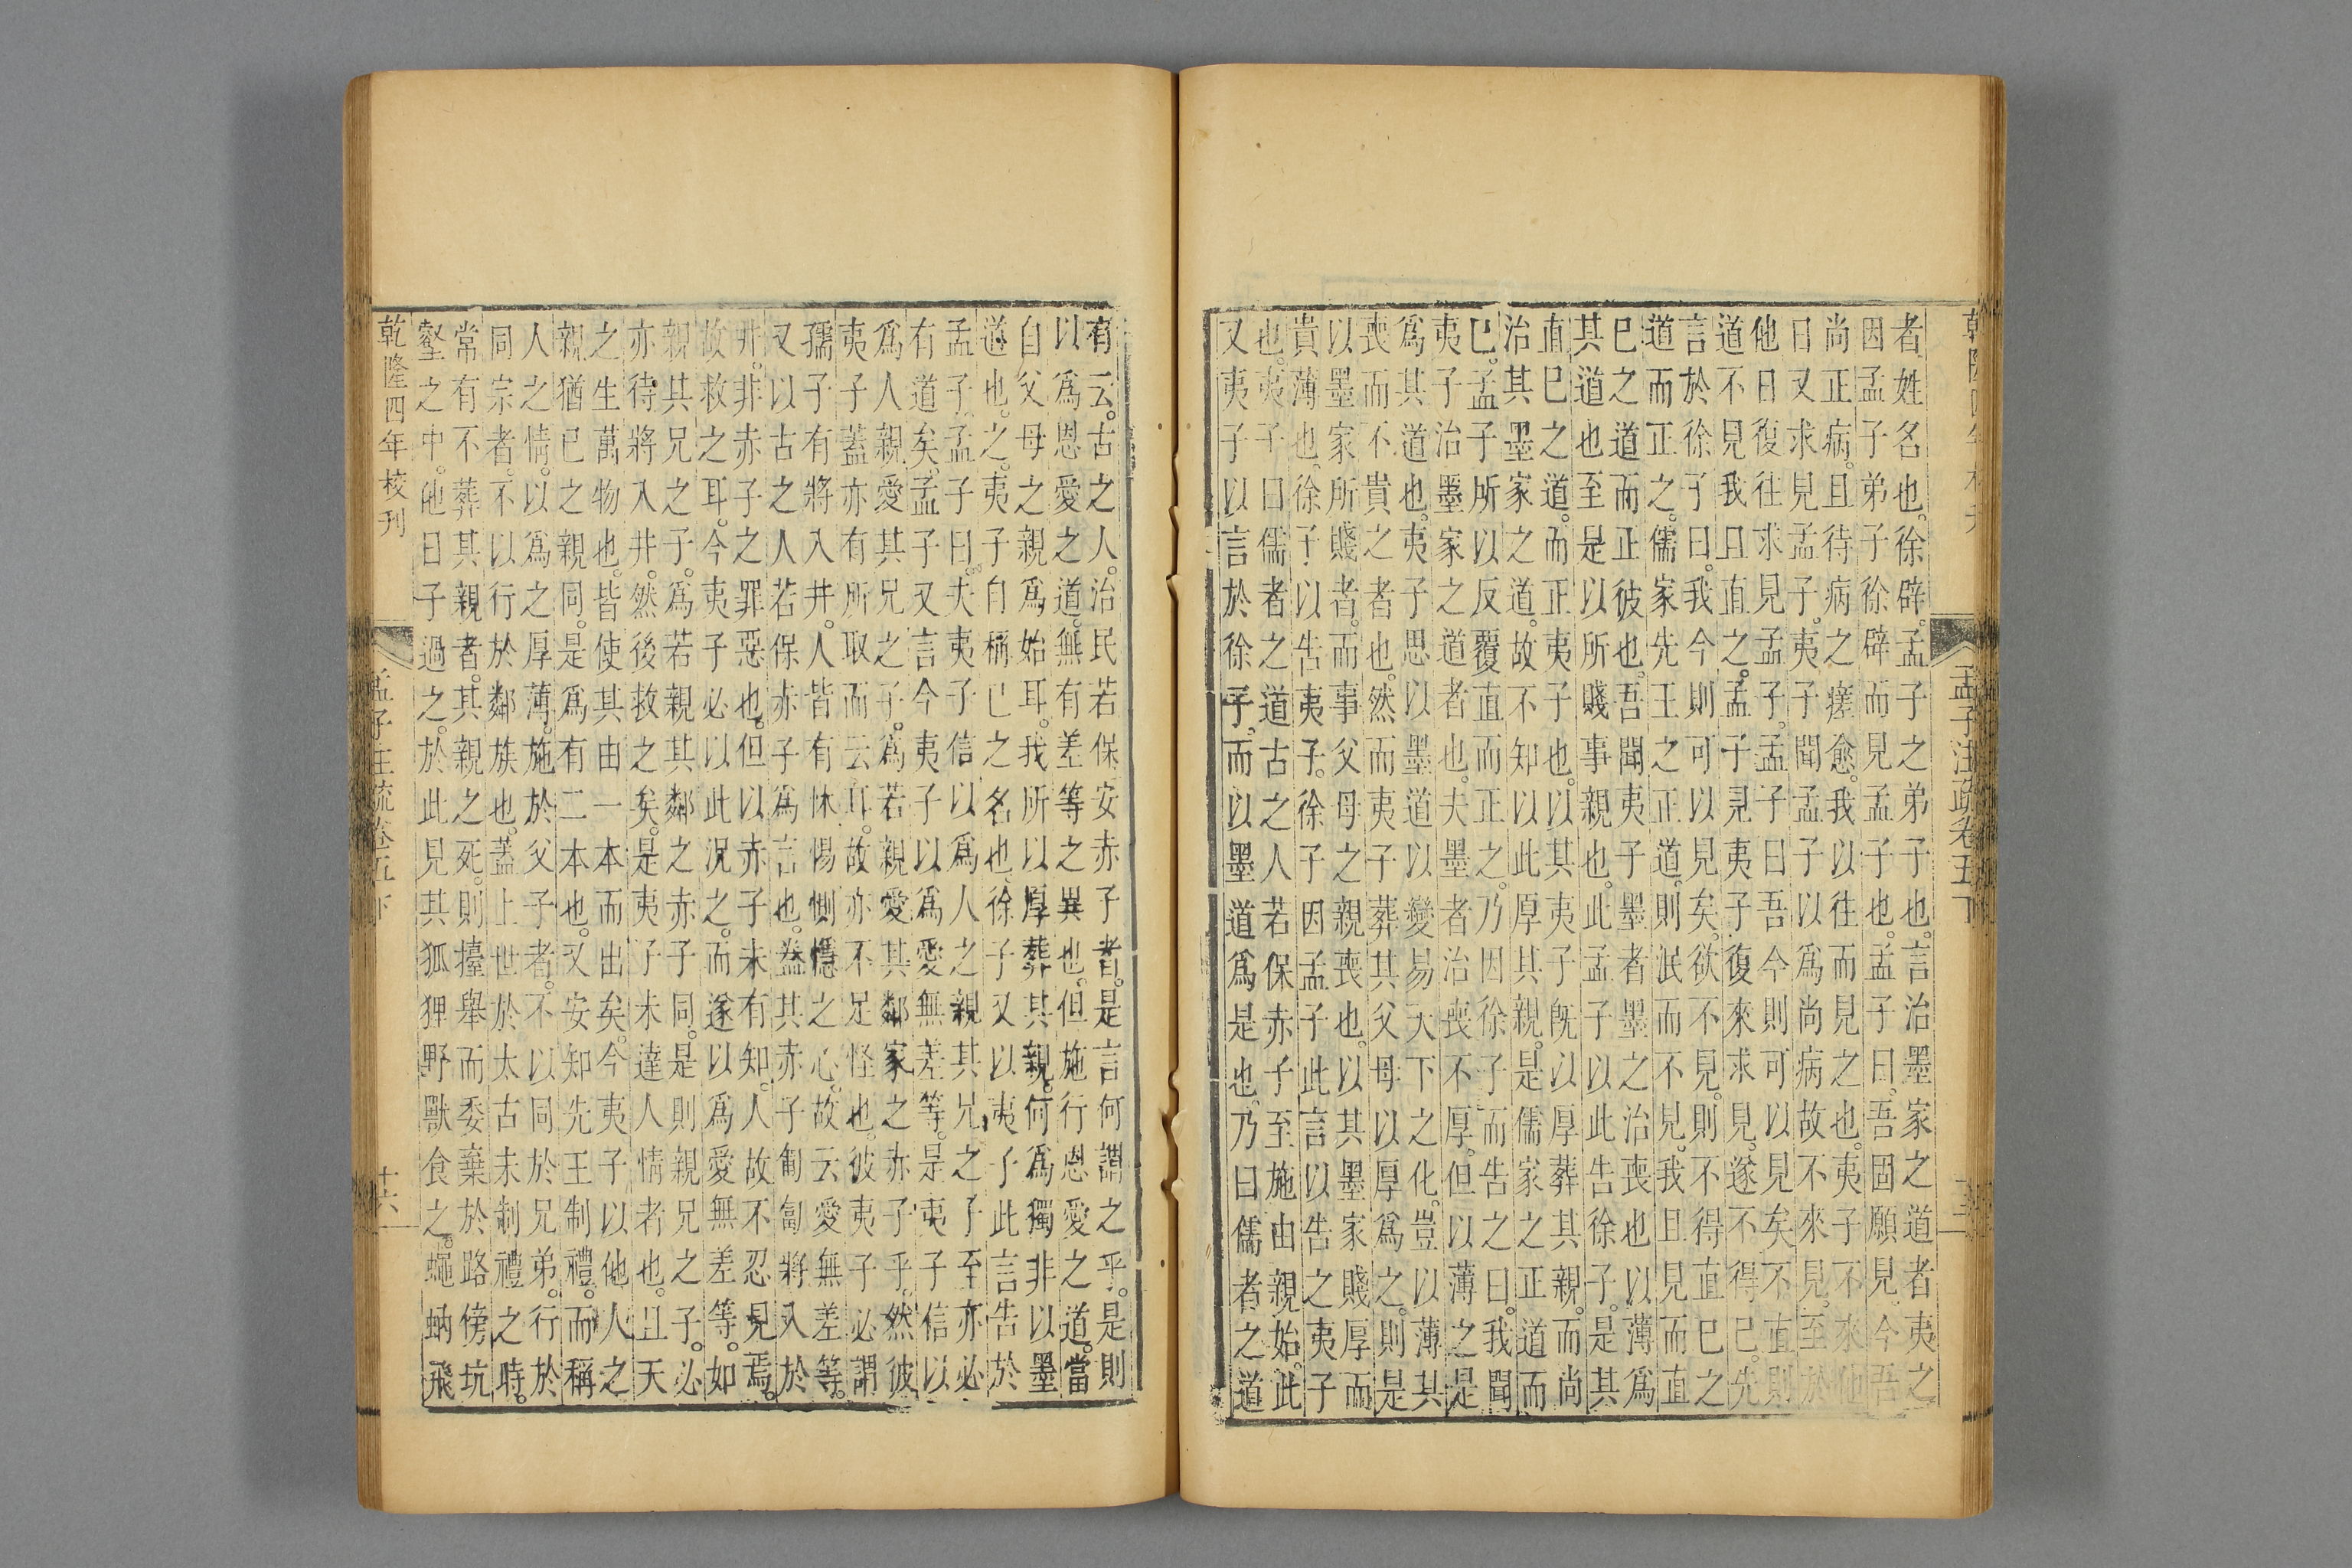 乾隆四年校刊 孟子注疏卷五下
者姓名也。徐辟。孟子之弟子也。言治墨家之道者夷之
因孟子弟子徐辟而見孟子也。孟子曰。吾固願見今吾
尚正病。且待病之瘥愈。我以往而見之也。夷子不來他
日又求見孟子。夷子聞孟子以爲尚病故不來見。至於
他日復往求見孟子。孟子曰吾今則可以見矣不直則
道不見我且直之。孟子見夷子復來求見。遂不得已。先
言於徐子曰。我今則可以見矣。欲不見。則不得直已之
道而正之。儒家先王之正道。則泯而不見。我且見而直
已之道而正彼也。吾聞夷子墨者墨之治喪也以薄爲
其道也至是以所賤事親也。此孟子以此告徐子。是其
直已之道。而正夷子也。以其夷子旣以厚葬其親。而尚
治其墨家之道。故不知以此厚其親。是儒家之正道而
已。孟子所以反覆直而正之。乃因徐子而告之曰。我聞
夷子治墨家之道者也。夫墨者治喪不厚。但以薄之是
爲其道也。夷子思以墨道以變易天下之化。豈以薄其
喪而不貴之者也。然而夷子葬其父母以厚爲之。則是
以墨家所賤者。而事父母之親喪也。以其墨家賤厚而
貴薄也。徐子以告夷子。徐子因孟子此言以告之夷子
也。夷子曰儒者之道古之人若保赤子至施由親始。此
又夷子以言於徐子。而以墨道爲是也。乃曰儒者之道
有云。古之人。治民若保安赤子者。是言何謂之乎。是則
以爲恩愛之道。無有差等之異也。但施行恩愛之道。當
自父母之親爲始耳。我所以厚葬其親。何爲獨非以墨
道也。之。夷子自稱已之名也。徐子又以夷子此言告於
孟子。孟子曰。夫夷子信以爲人之親其兄之子至亦必
有道矣。孟子又言今夷子以爲愛無差等。是夷子信以
爲人親愛其兄之子。爲若親愛其鄰家之赤子乎。然彼
夷子蓋亦有所取而云耳。故亦不足怪也。彼夷子必謂
孺子有將入井。人皆有怵惕惻隱之心。故云愛無差等。
又以古之人若保赤子爲言也。蓋其赤子匍匐將入於
井。非赤子之罪惡也。但以赤子未有知。人故不忍見焉。
故救之耳。今夷子必以此況之。而遂以爲愛無差等。如
親其兄之子。爲若親其鄰之赤子同。是則親兄之子。必
亦待將入井。然後救之矣。是夷子未達人情者也。且天
之生萬物也。皆使其由一本而出矣。今夷子以他人之
親猶已之親同。是爲有二本也。又安知先王制禮。而稱
人之情。以爲之厚薄。施於父子者。不以同於兄弟。行於
同宗者。不以行於鄰族也。蓋上世於太古未制禮之時。
常有不葬其親者。其親之死。則擡舉而委棄於路傍坑
壑之中。他日子過之。於此見其狐狸野獸食之。蠅蚋飛
乾隆四年校刊 孟子注疏卷五下 十六